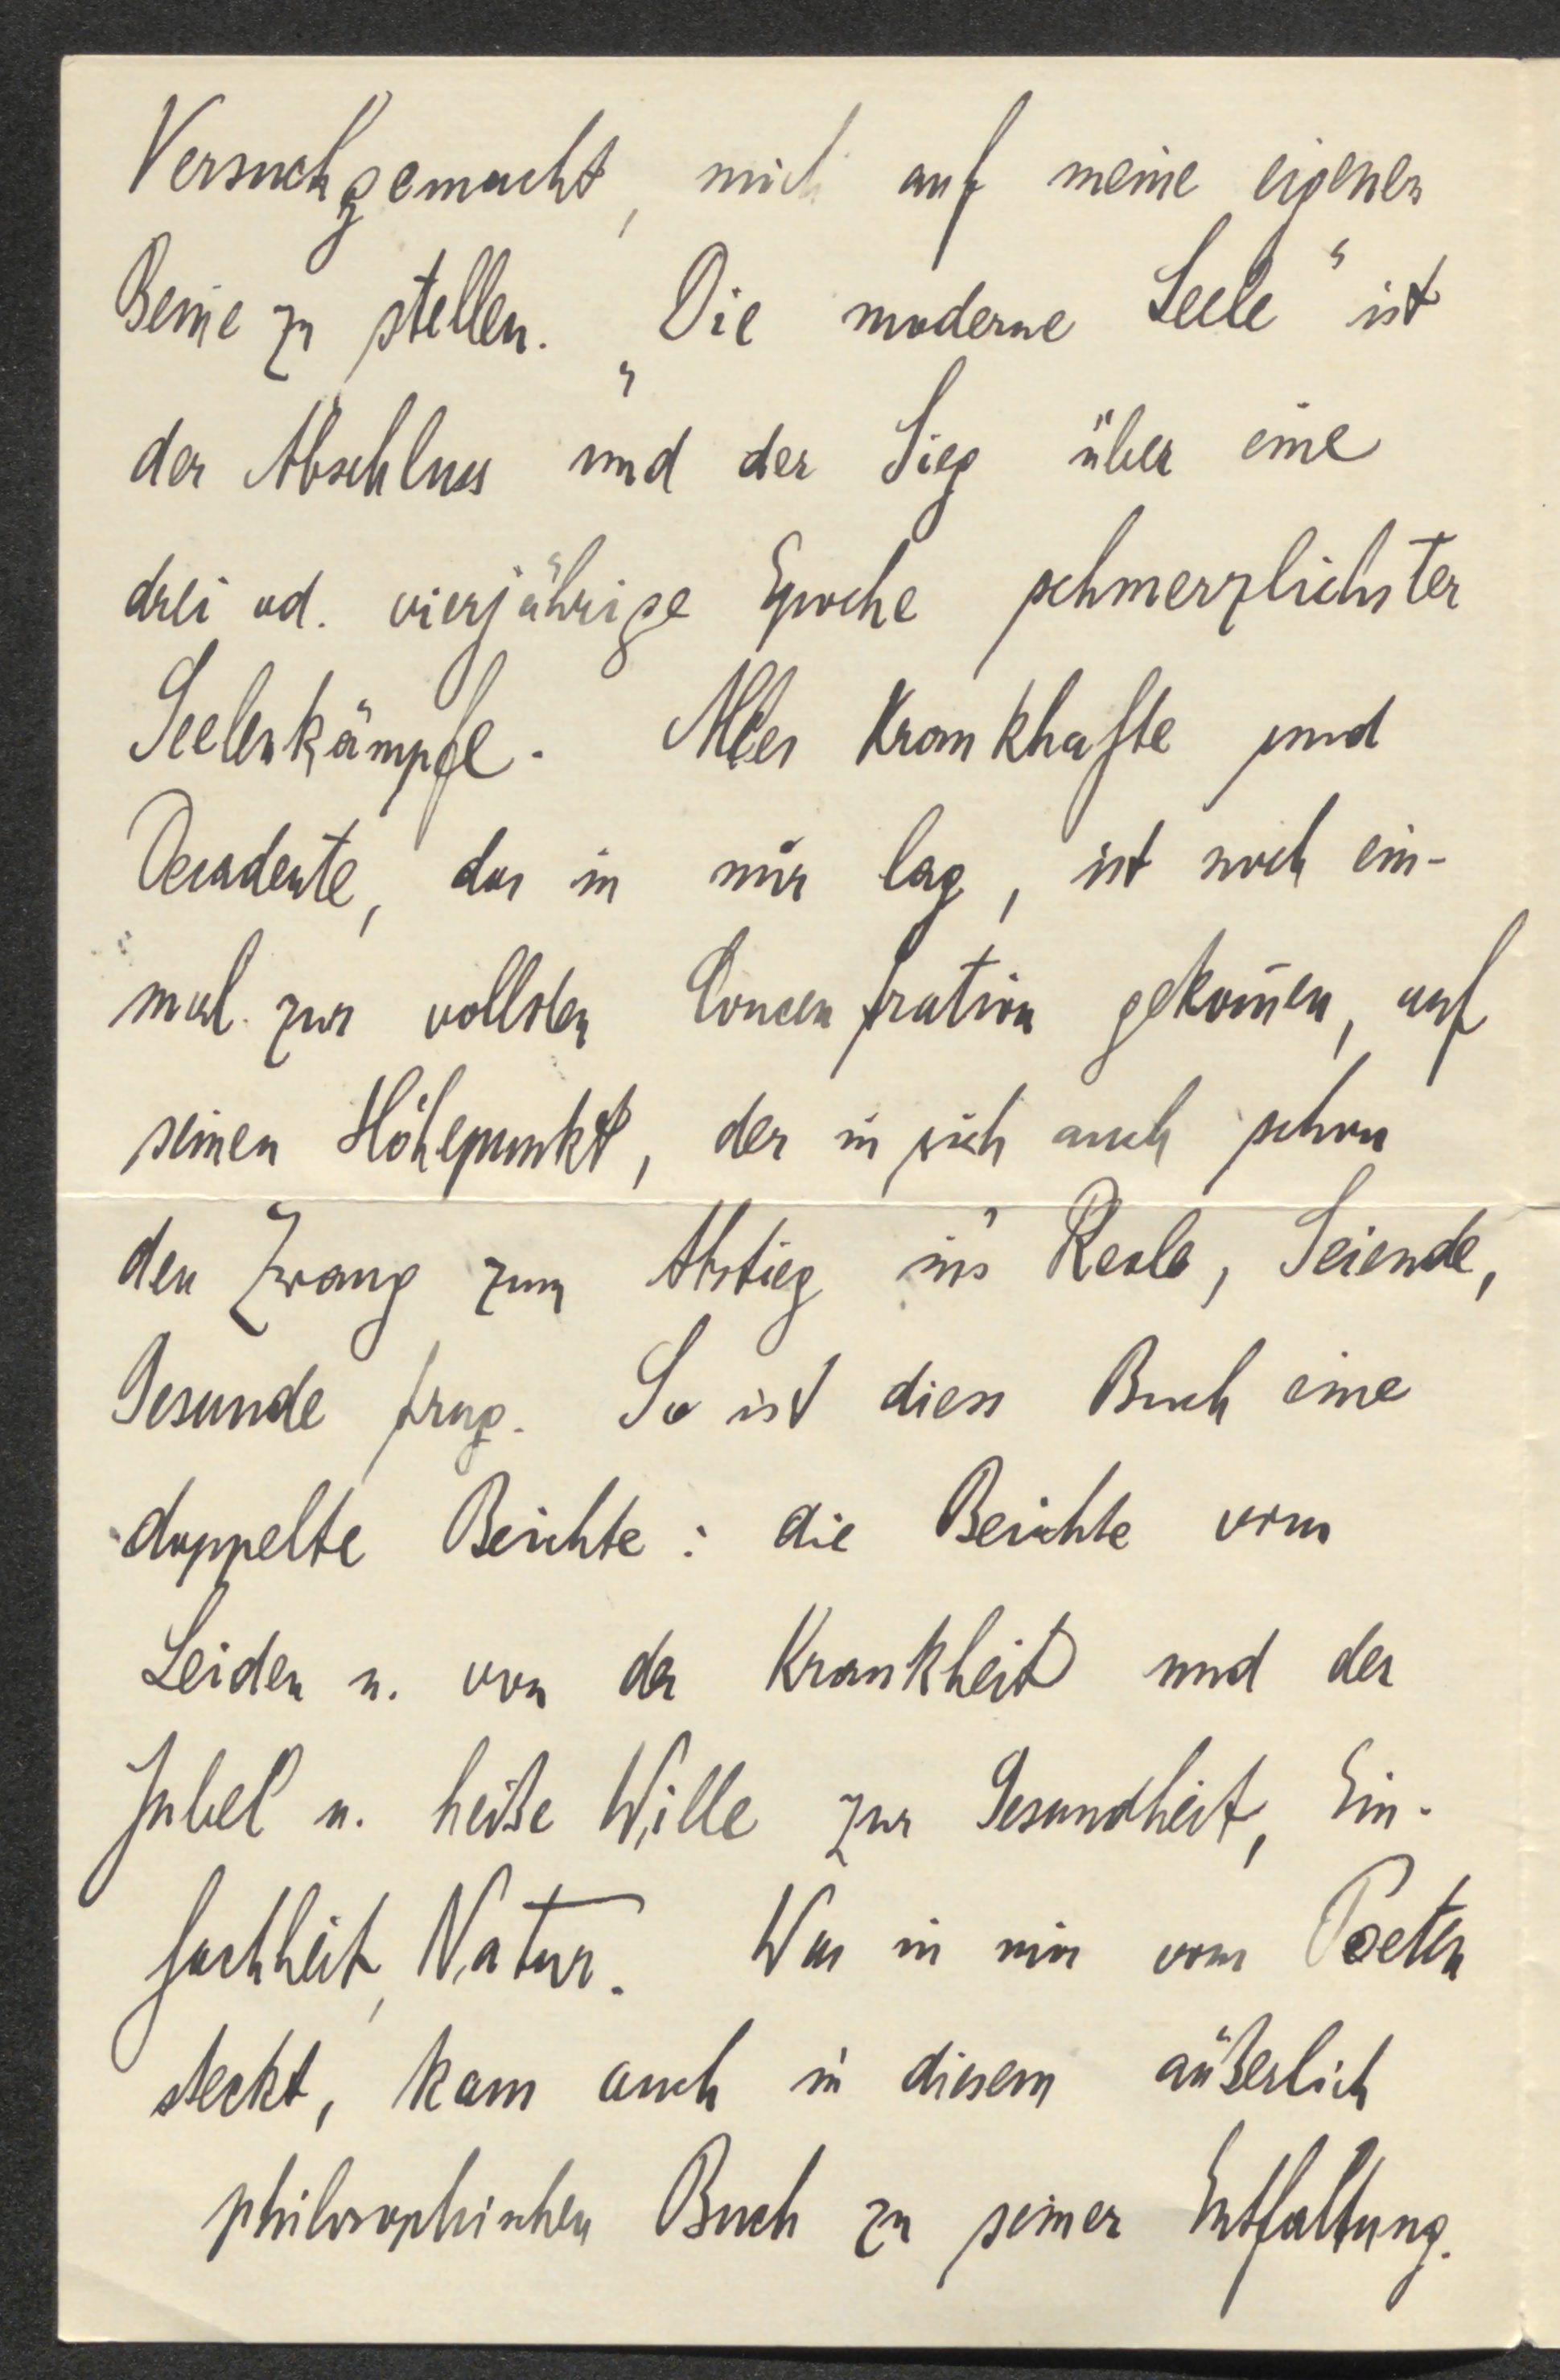 Versuch gemacht, mich auf meine eigenen
Beine zu stellen. „Die moderne Seele“ ist
der Abschluss und der Sieg über eine
drei od. vierjährige Epoche schmerzlichster
Seelenkämpfe. Alles Krankhafte und
Decadente, das in mir lag, ist noch ein-
mal zur vollsten Concentration gekom̄en, auf
seinen Höhepunkt, der in sich auch schon
den Zwang zum Abstieg in's Reale, Seiende,
Gesunde trug. So ist diess Buch eine
doppelte Beichte: die Beichte vom
Leiden u. von der Krankheit und der
Jubel u. heiße Wille zur Gesundheit, Ein-
fachheit, Natur. Was in mir vom Poeten
steckt, kam auch in diesem äußerlich
philosophischen Buch zu seiner Entfaltung.